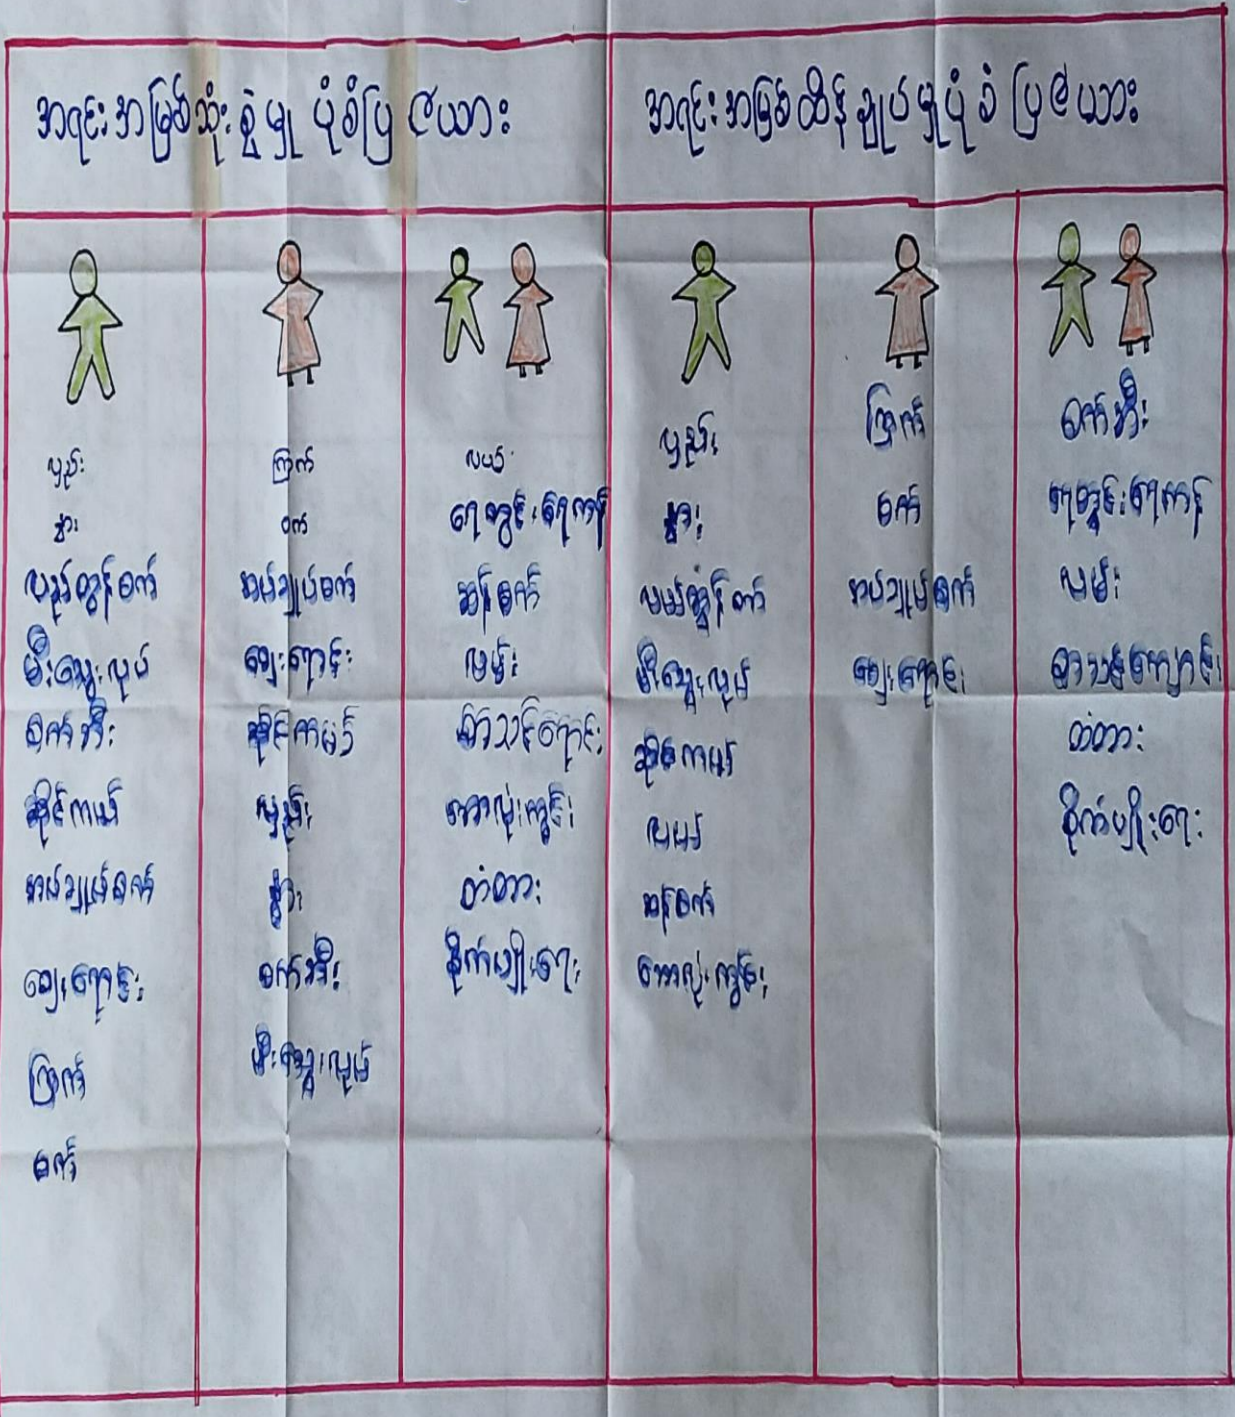 အရင်းအမြစ်သုံးစွဲမှု ပုံစံပြ ဇယား
အရင်းအမြစ်ထိန်ချုပ်မှုပုံစံ ပြဇယား
လှည်း
နွား
လည်ထွန်စက်
မီးသွေးလုပ်
စက်ဘီး
ဆိုင်ကယ်
အပ်ချုပ်စက်
ဈေးရောင်း
ကြက်
ဝက်
ကြက်
ဝက်
အပ်ချုပ်စက်
ဈေးရောင်း
ဆိုင်ကယ်
လှည်း
နွား
စက်ဘီး
မီးသွေးလုပ်
လယ်
ရေတွင်းရေကန်
ဆန်စက်
လမ်း
စာသင်ကျောင်း
ဘောလုံးကွင်း
တံတား
စိုက်ပျိုးရေး
လှည်း
နွား
မီးသွေးလုပ်
ဆိုင်ကယ်
လယ်
ဆန်စက်
ဘောလုံးကွင်း
ကြက်
ဝက်
အပ်ချုပ်စက်
ဈေးရောင်း
စက်ဘီး
ရေတွင်းရေကန်
လမ်း
စာသင်ကျောင်း
တံတား
စိုက်ပျိုးရေး